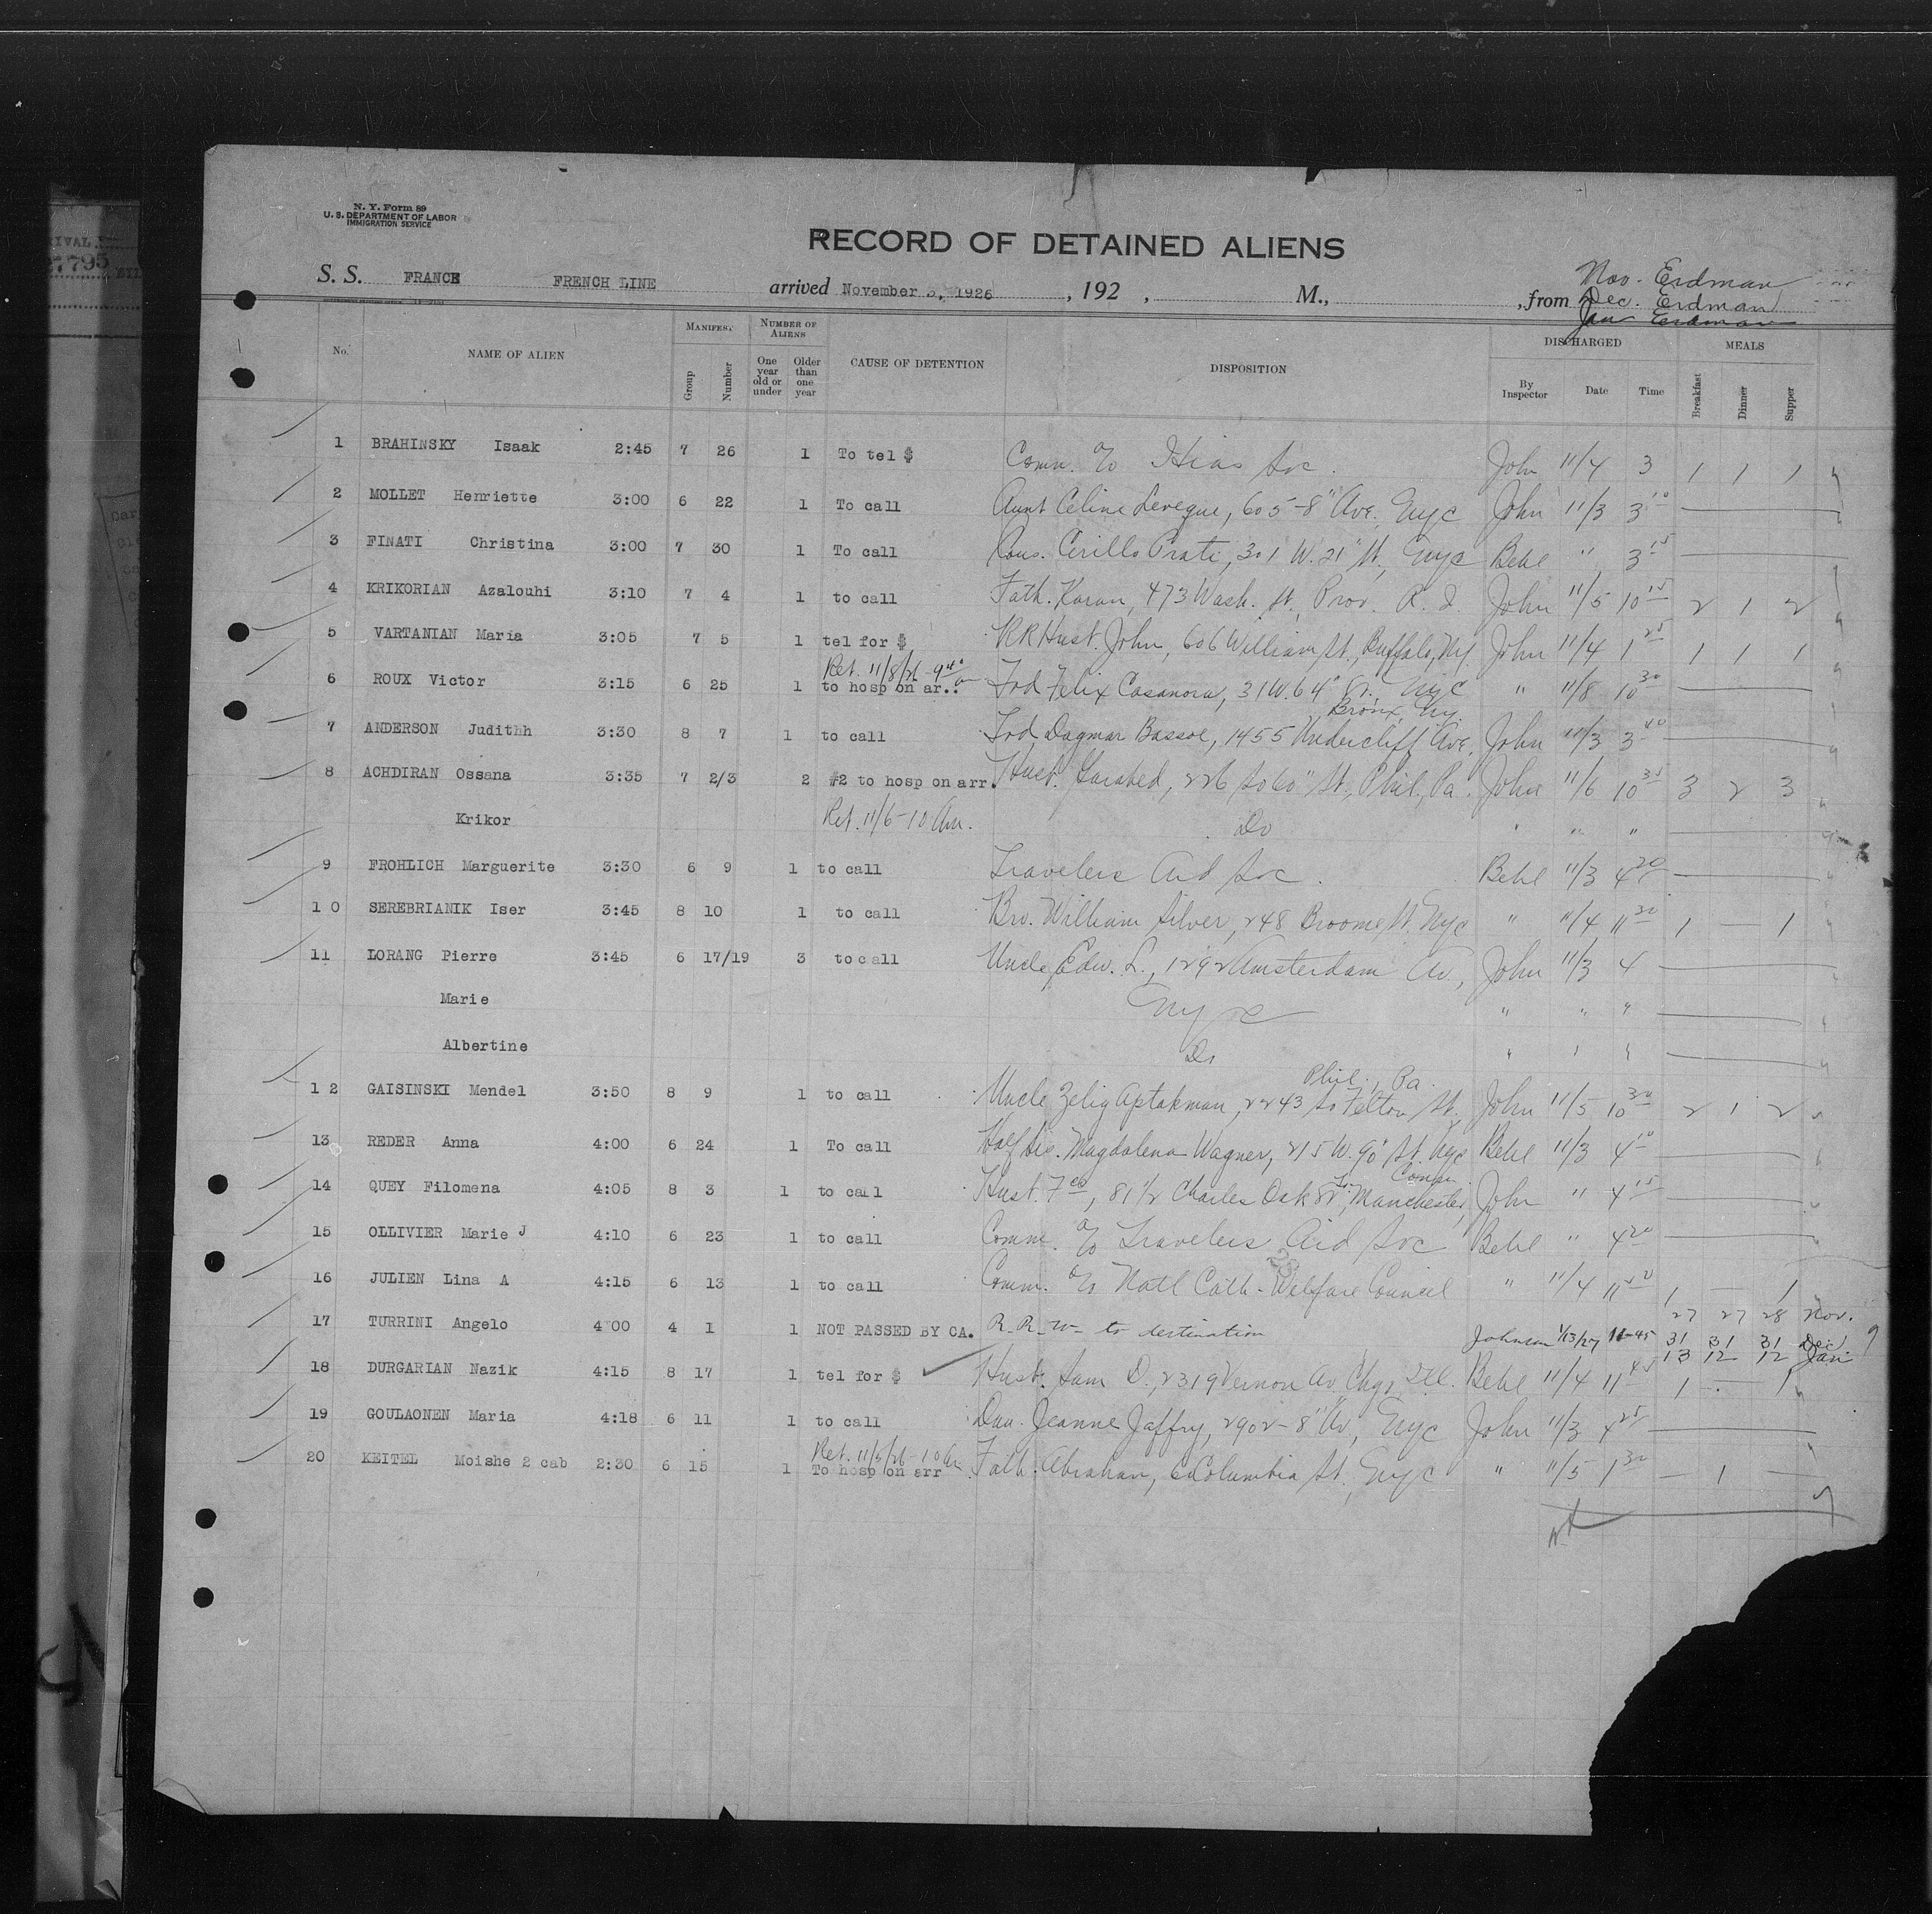 RIVAL
27795
N. Y. Form 89
U. S. DEPARTMENT OF LABOR
IMMIGRATION SERVICE
RECORD OF DETAINED ALIENS
S. S. FRANCE FRENCH LINE arrived November 3, 1926, 192 , M., , from
Nov. Erdman
Dec. Erdman
Jan Erdman
No. NAME OF ALIEN MANIFEST Group Number NUMBER OF ALIENS One year old or under Older than one year CAUSE OF DETENTION DISPOSITION DISCHARGED By Inspector Date Time MEALS Breakfast Dinner Supper
1 BRAHINSKY Isaak 2:45 7 26 1 To tel $ Comm. c/o Hias Soc. John 11/4 3 1 1 1
2 MOLLET Henriette 3:00 6 22 1 To call Aunt Celine Leveque, 605-8" Ave. NYC John 11/3 3 10
3 FINATI Christina 3:00 7 30 1 To call Cous. Cirillo Prati, 301 W. 21" St., NYC Behl " 3 15
4 KRIKORIAN Azalouhi 3:10 7 4 1 to call Fath. Karan, 473 Wash. St. Prov. R. I. John 11/5 10 15 2 1 2
5 VARTANIAN Maria 3:05 7 5 1 tel for $ RR Husb. John, 606 William St., Buffalo, NY. John 11/4 1 25 1 1 1
Ret. 11/8/26 - 9 40 a
6 ROUX Victor 3:15 6 25 1 to hosp on ar.. Frd Felix Casanova, 31 W. 64" St., NYC " 11/8 10 30
Bronx, Ny.
7 ANDERSON Judithh 3:30 8 7 1 to call Frd Dagmar Bassoe, 1455 Undercliff Ave. John 11/3 3 40
8 ACHDIRAN Ossana 3:35 7 2/3 2 #2 to hosp on arr. Husb. Garabed, 226 So 60" St., Phil., Pa. John 11/6 10 35 3 2 3
Krikor Ret. 11/6 - 10 Am. Do " " "
9 FROHLICH Marguerite 3:30 6 9 1 to call Travelers Aid Soc. Behl 11/3 4 20
10 SEREBRIANIK Iser 3:45 8 10 1 to call Bro. William Silver, 248 Broome St. Nyc " 11/4 11 30 1 — 1
11 LORANG Pierre 3:45 6 17/19 3 to call Uncle Edw. L., 1292 Amsterdam Av., John 11/3 4
Marie NYC " " "
Albertine Do " " "
Phil., Pa.
12 GAISINSKI Mendel 3:50 8 9 1 to call Uncle Zelig Aptakman, 2243 So Felton St., John 11/5 10 30 2 1 2
13 REDER Anna 4:00 6 24 1 To call Half sis. Magdalena Wagner, 215 W. 90" St. Nyc Behl 11/3 4 10
Conn.
14 QUEY Filomena 4:05 8 3 1 to call Husb. Fco, 81 1/2 Charles Oak St., Manchester, John " 4 15
15 OLLIVIER Marie J 4:10 6 23 1 to call Comm. c/o Travelers Aid Soc Behl " 4 20
16 JULIEN Lina A 4:15 6 13 1 to call Comm. c/o Natl Cath. Welfare Council " 11/4 11 1 — 1
27 27 28 Nov.
17 TURRINI Angelo 4 00 4 1 1 NOT PASSED BY CA. R. R. W- to destination Johnson 1/13/27 11-45 31 31 31 Dec
13 12 12 Jan
18 DURGARIAN Nazik 4:15 8 17 1 tel for $ Husb. Sam D., 2319 Vernon Av Chgo, Ill. Behl 11/4 11 45 1 — 1
19 GOULAONEN Maria 4:18 6 11 1 to call Dau. Jeanne Jaffry, 2902-8" Av., NYC John 11/3 4 25
Ret. 11/5/26 - 10 Am
20 KEITEL Moishe 2 cab 2:30 6 15 1 To hosp on arr Fath. Abraham, 6 Columbia St., NYC " 11/5 1 30 — 1 —